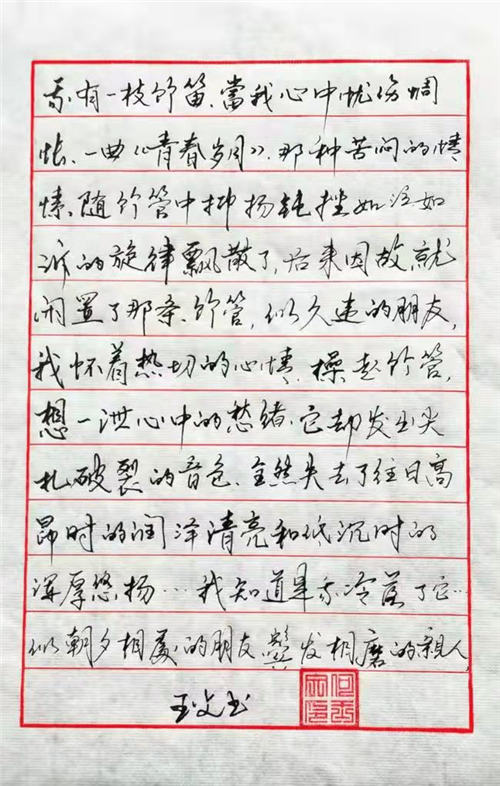 我有一枝竹笛、當我心中忧伤惆
怅、一曲《青春岁月》、那种苦闷的情
愫、随竹管中抑扬钝挫如泣如
诉的旋律飘散了、后来因故、就
闲置了那条竹管，似久违的朋友，
我怀着热切的心情、操起竹管，
想一泄心中的愁绪、它却发出尖
扎破裂的音色、全然失去了往日高
昂时的润泽清亮和低沉时的
浑厚悠扬……我知道是我冷落了它…
似朝夕相处的朋友鬓发相磨的亲人，
王文书